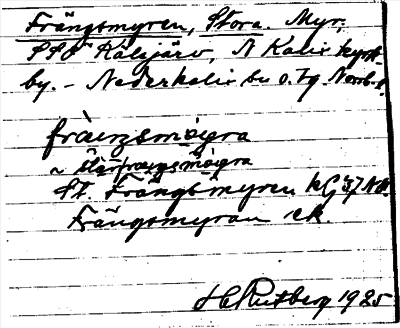 Frängsmyren, Stora. Myr,
SSO Kälsjärv, N Kalix kyrk-
by. - Nederkalix sn o. tg. Norrb. l.
fràŋsmỳra
~ stórfraŋsmỳra
St. Frängsmyren kG 37 NV.
Frängsmyran ek.
H Rutberg 1925